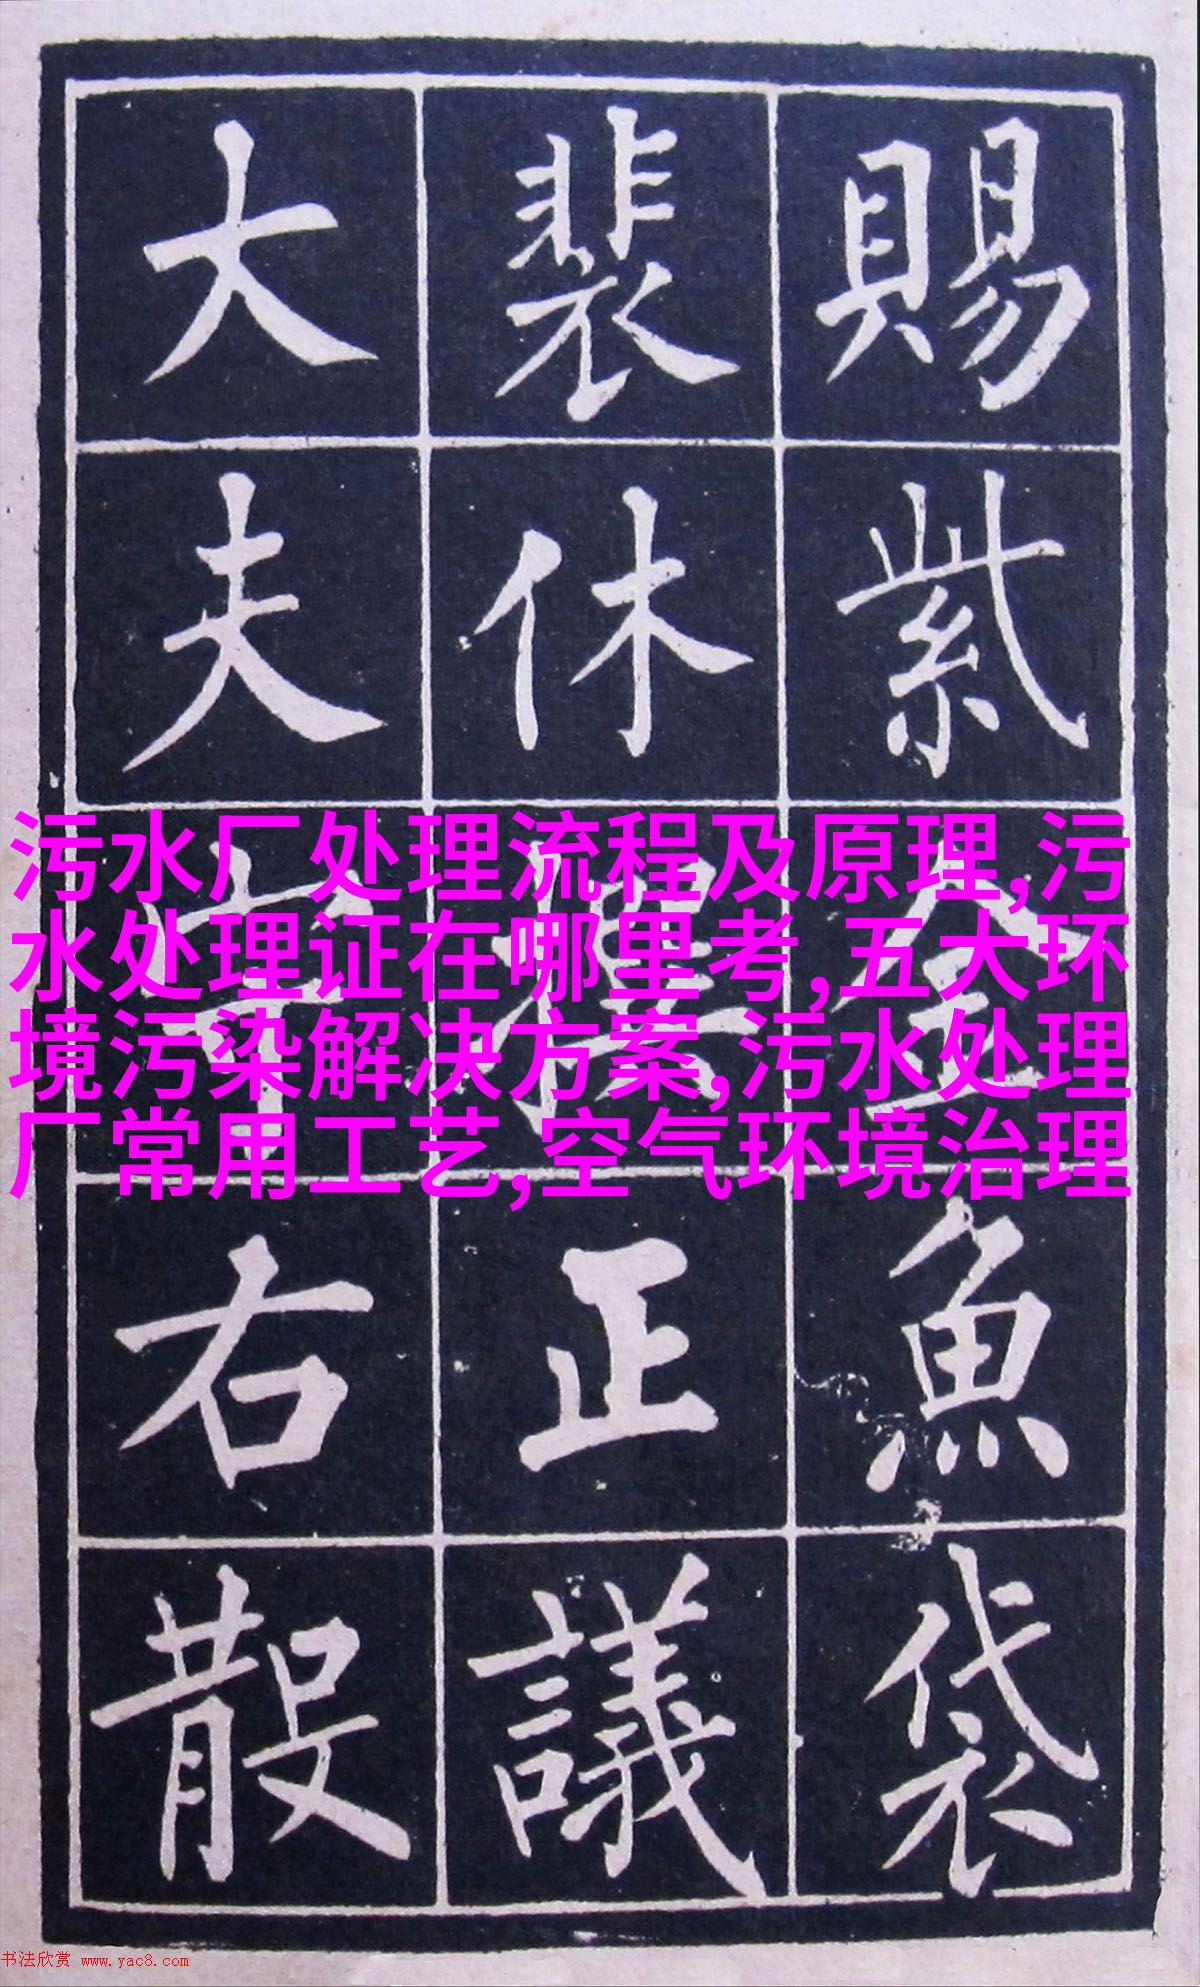 賜紫金魚袋
裴休撰正議
大夫守右散
污水厂处理流程及原理,污
水处理证在哪里考,五大环
境污染解决方案,污水处理
厂常用工艺,空气环境治理
书法欣赏 www.yac8.com